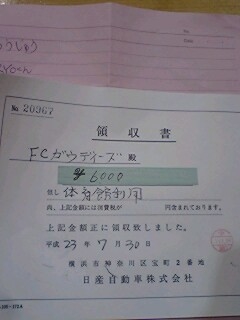 No.
No. 20967
領収書
FCガウディーズ 殿
¥6000
但し 体育館利用
内、上記金額には消費税が 円含まれております。
上記金額正に領収致しました。
平成 23年 7月 30日
横浜市神奈川区宝町2番地
日産自動車株式会社